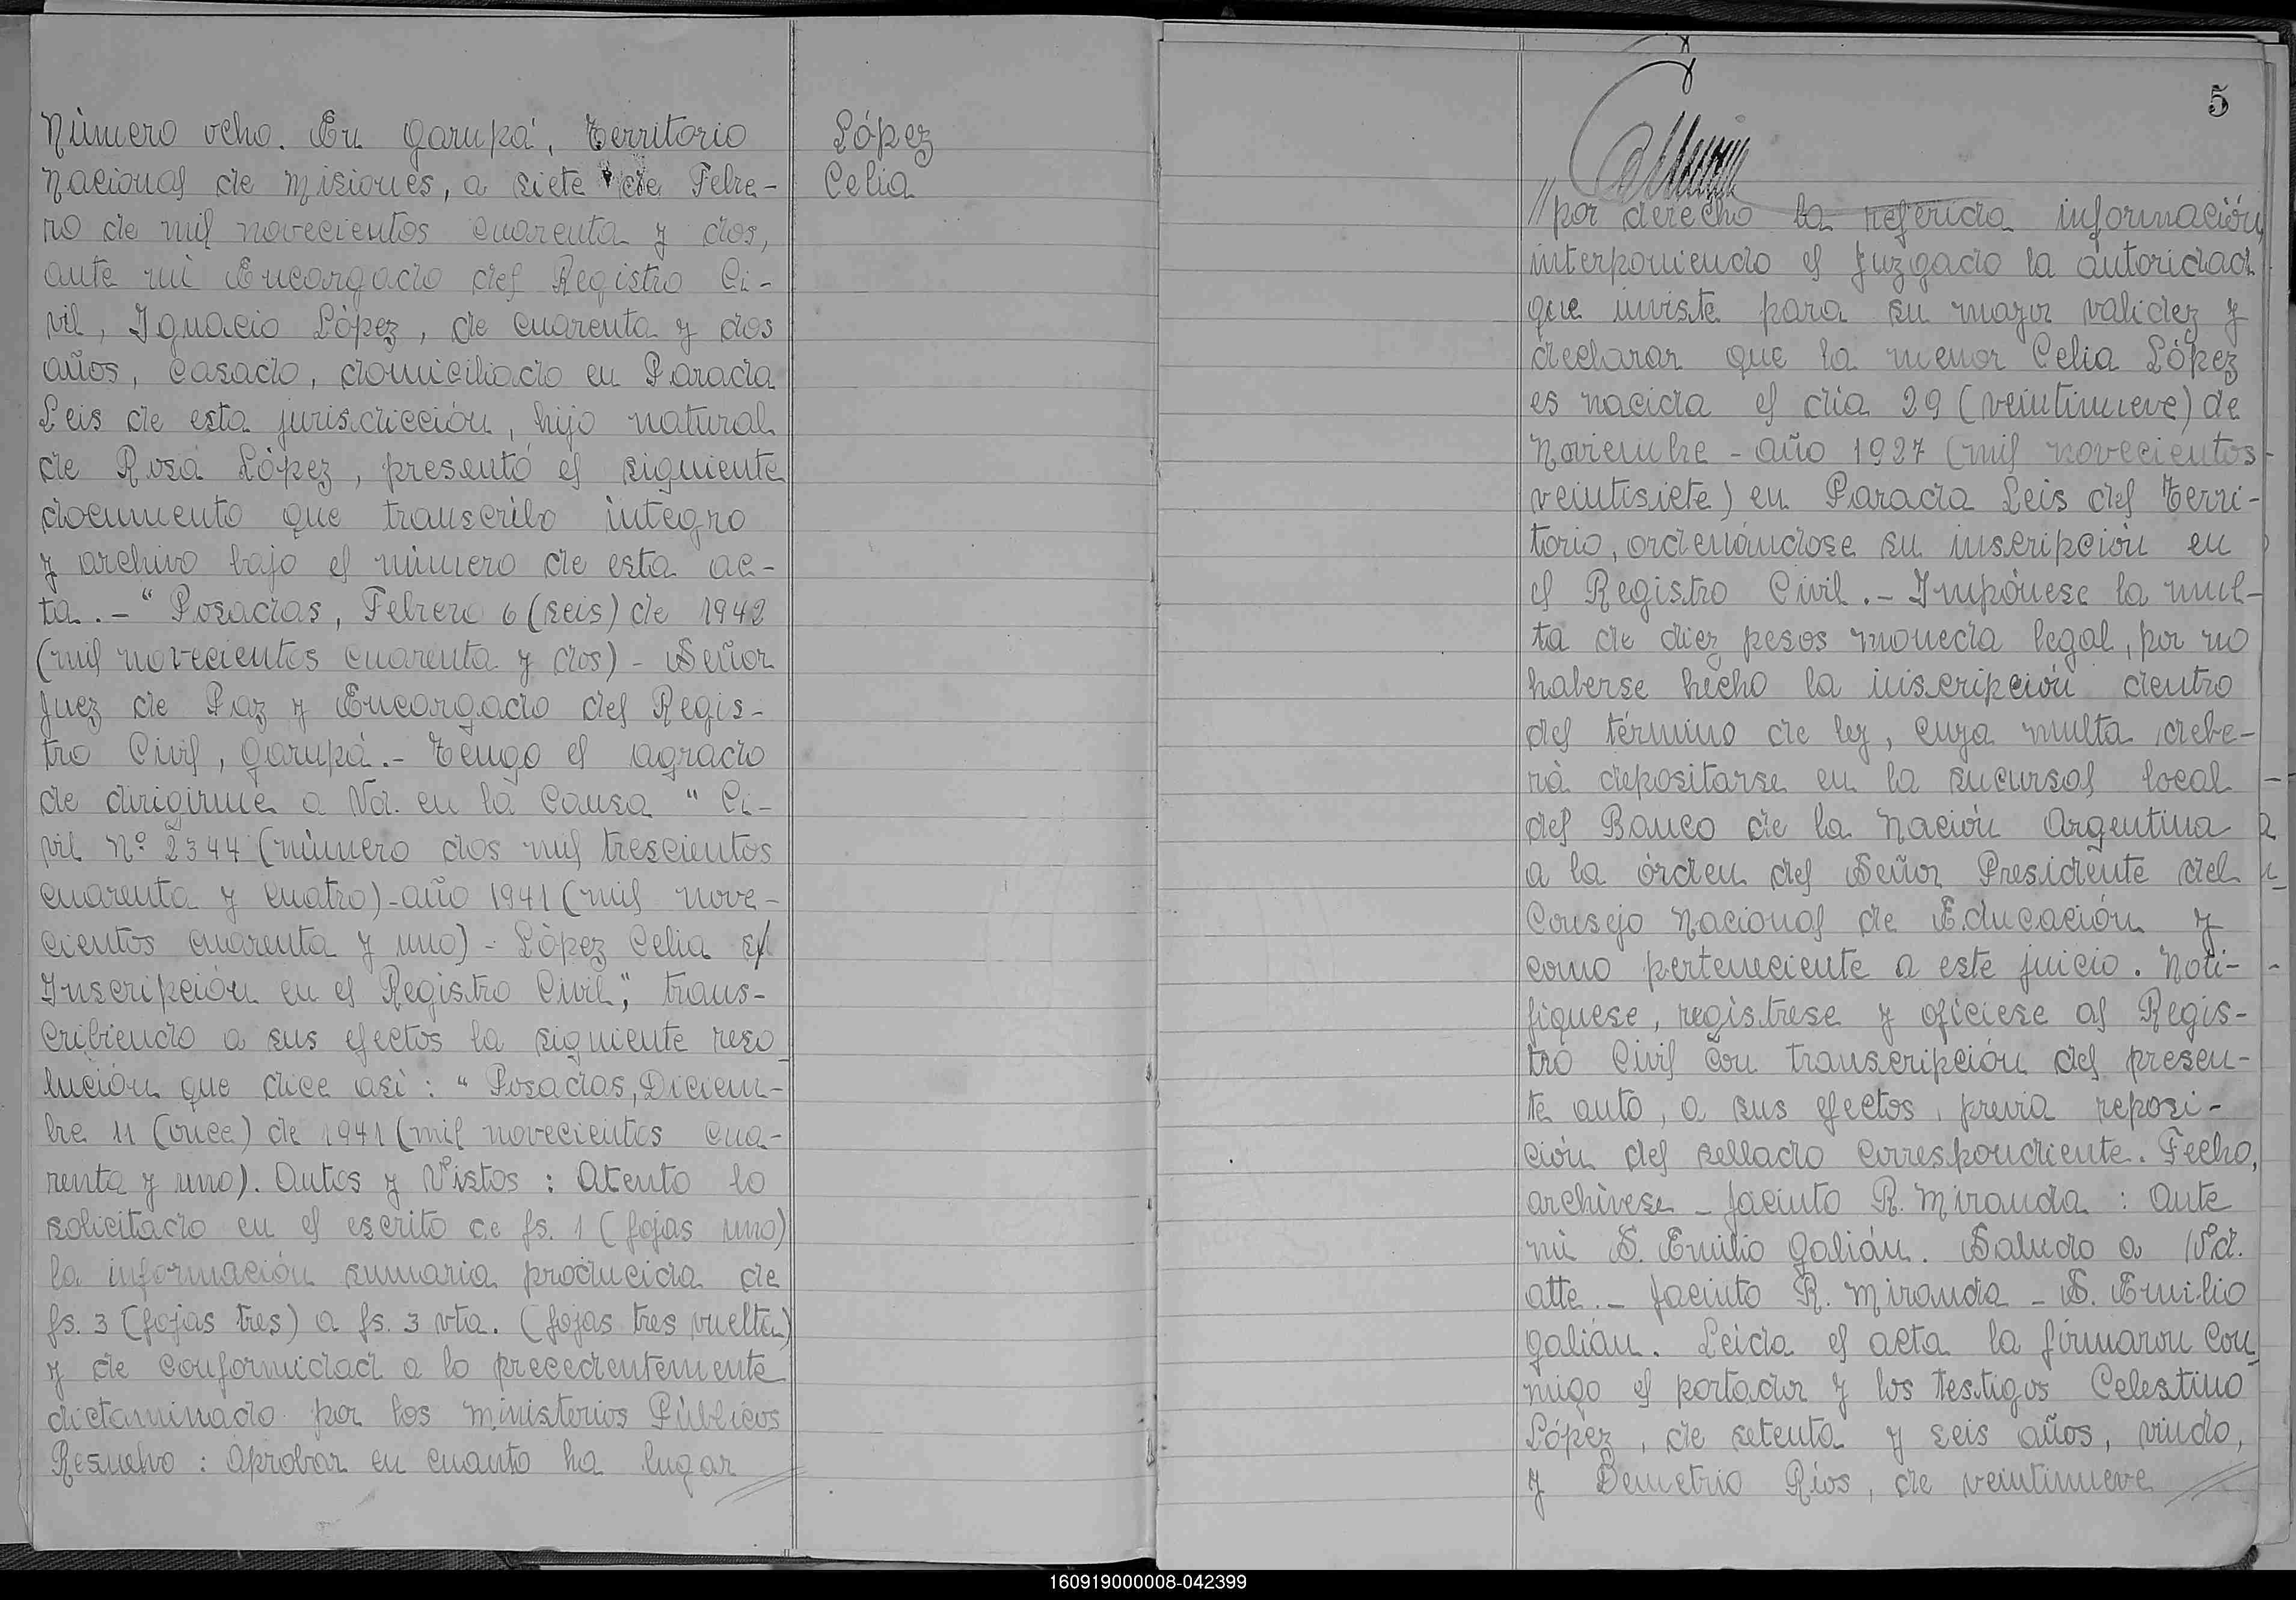 Número ocho. En Garupá, Territorio
Nacional de Misiones, a siete de Febre-
ro de mil novecientos cuarenta y dos,
ante mi Encargado del Registro Ci-
vil, Ignacio López, de cuarenta y dos
años, casado, domiciliado en Parada
Leis de esta jurisdicción, hijo natural
de Rosa López, presentó el siguiente
documento que transcribo integro
y archivo bajo el número de esta ac-
ta.-" Posadas, Febrero 6 (seis) de 1942
(mil novecientos cuarenta y dos) - Señor
Juez de Paz y Encargado del Regis-
tro Civil, Garupá.- Tengo el agrado
de dirigirme a Vd. en la causa " Ci-
vil Nº 2344 (número dos mil trescientos
cuarenta y cuatro)-año 1941 (mil nove-
cientos cuarenta y uno) - López Celia s/
Inscripción en el Registro Civil", trans-
cribiendo a sus efectos la siguiente reso-
lución que dice así : " Posadas, Diciem-
bre 11 (once) de 1941 (mil novecientos cua-
renta y uno). Autos y Vistos : Atento lo
solicitado en el escrito de fs. 1 (fojas uno)
la información sumaria producida de
fs. 3 (fojas tres) a fs. 3 vta. (fojas tres vuelta)
y de conformidad a lo precedentemente
dictaminado por los Ministerios Públicos
Resuelvo : Aprobar en cuanto ha lugar //
López
Celia
5
//por derecho la referida información,
interponiendo el Juzgado la autoridad
que inviste para su mayor validez y
declarar que la menor Celia López
es nacida el día 29 (veintinueve) de
Noviembre - año 1927 (mil novecientos
veintisiete) en Parada Leis del Terri-
torio, ordenándose su inscripción en
el Registro Civil.- Impónese la mul-
ta de diez pesos moneda legal, por no
haberse hecho la inscripción dentro
del término de ley, cuya multa debe-
rá depositarse en la sucursal local
del Banco de la Nación Argentina
a la órden del Señor Presidente del
Consejo Nacional de Educación y
como perteneciente a este juicio. Noti-
fíquese, regístrese y ofíciese al Regis-
tro Civil con transcripción del presen-
te auto, a sus efectos, previa reposi-
ción del sellado correspondiente. Fecho,
archívese - Jacinto R. Miranda : Ante
mi S. Emilio Galián. Saludo a Vd.
atte.- Jacinto R. Miranda - S. Emilio
Galián. Leida el acta la firmaron con
migo el portador y los testigos Celestino
López, de setenta y seis años, viudo,
y Demetrio Ríos, de veintinueve //
160919000008-042399